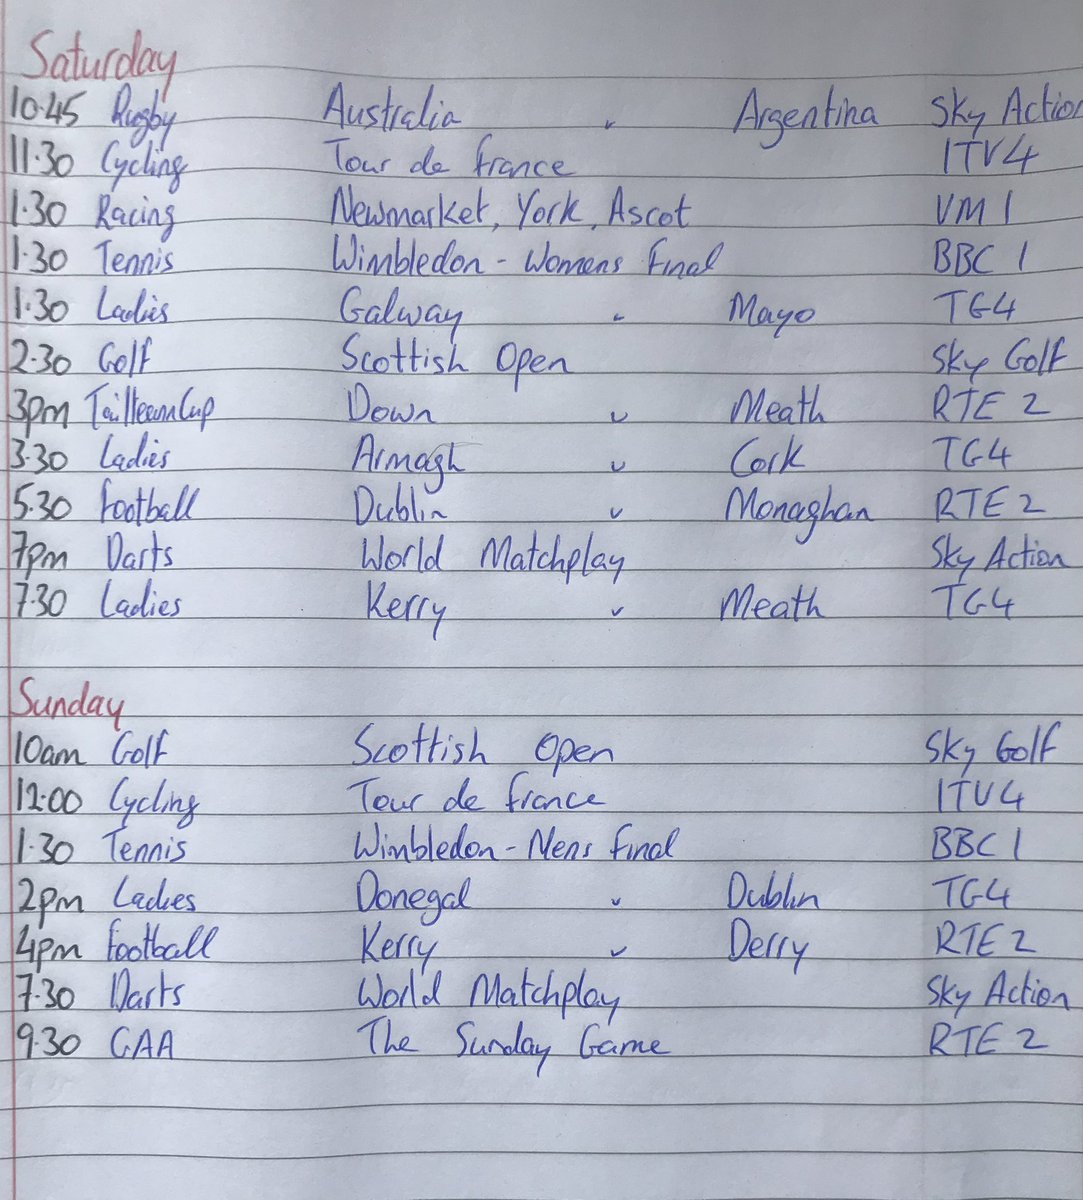 Saturday
10.45 Rugby Australia v Argentina Sky Action
11.30 Cycling Tour de France ITV4
1.30 Racing Newmarket, York, Ascot VM 1
1.30 Tennis Wimbledon - Womens Final BBC 1
1.30 Ladies Galway v Mayo TG4
2.30 Golf Scottish Open Sky Golf
3pm Tailteann Cup Down v Meath RTE 2
3.30 Ladies Armagh v Cork TG4
5.30 Football Dublin v Monaghan RTE 2
7pm Darts World Matchplay Sky Action
7.30 Ladies Kerry v Meath TG4
Sunday
10am Golf Scottish Open Sky Golf
12.00 Cycling Tour de France ITV4
1.30 Tennis Wimbledon - Mens Final BBC 1
2pm Ladies Donegal v Dublin TG4
4pm Football Kerry v Derry RTE 2
7.30 Darts World Matchplay Sky Action
9.30 GAA The Sunday Game RTE 2